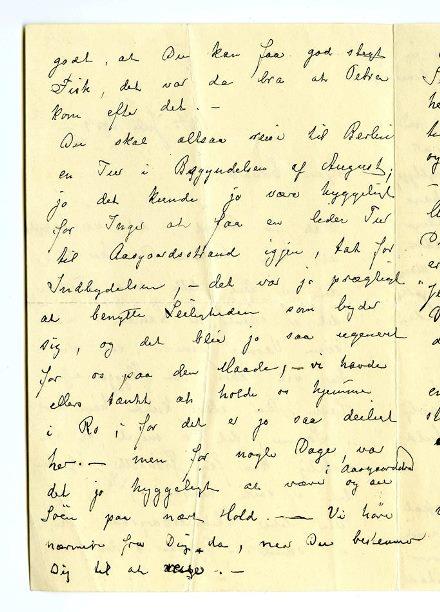 godt, at Du kan faa god stegt
Fisk, det var da bra at Petra
kom efter det. —
Du skal altsaa reise til Berlin
en Tur i Begyndelsen af August,
jo det kunde jo være hyggeligt
for Inger at faa en liden Tur
til Aasgaardsstrand igjen, tak for
Indbydelsen, — det var jo prægtigt
at benytte Leiligheden som byder
sig, og det blir jo saa ugenert
for os paa den Maade, — vi havde
ellers tænkt at holde os hjemme
i Ro, for det er jo saa deiligt
her. — men for nogle Dage, var
det jo hyggeligt at være i Aasgaardstrand og se
Söen paa nært Hold. — Vi hører
nærmere fra Dig da, naar Du bestemmer
Dig til at reise. —